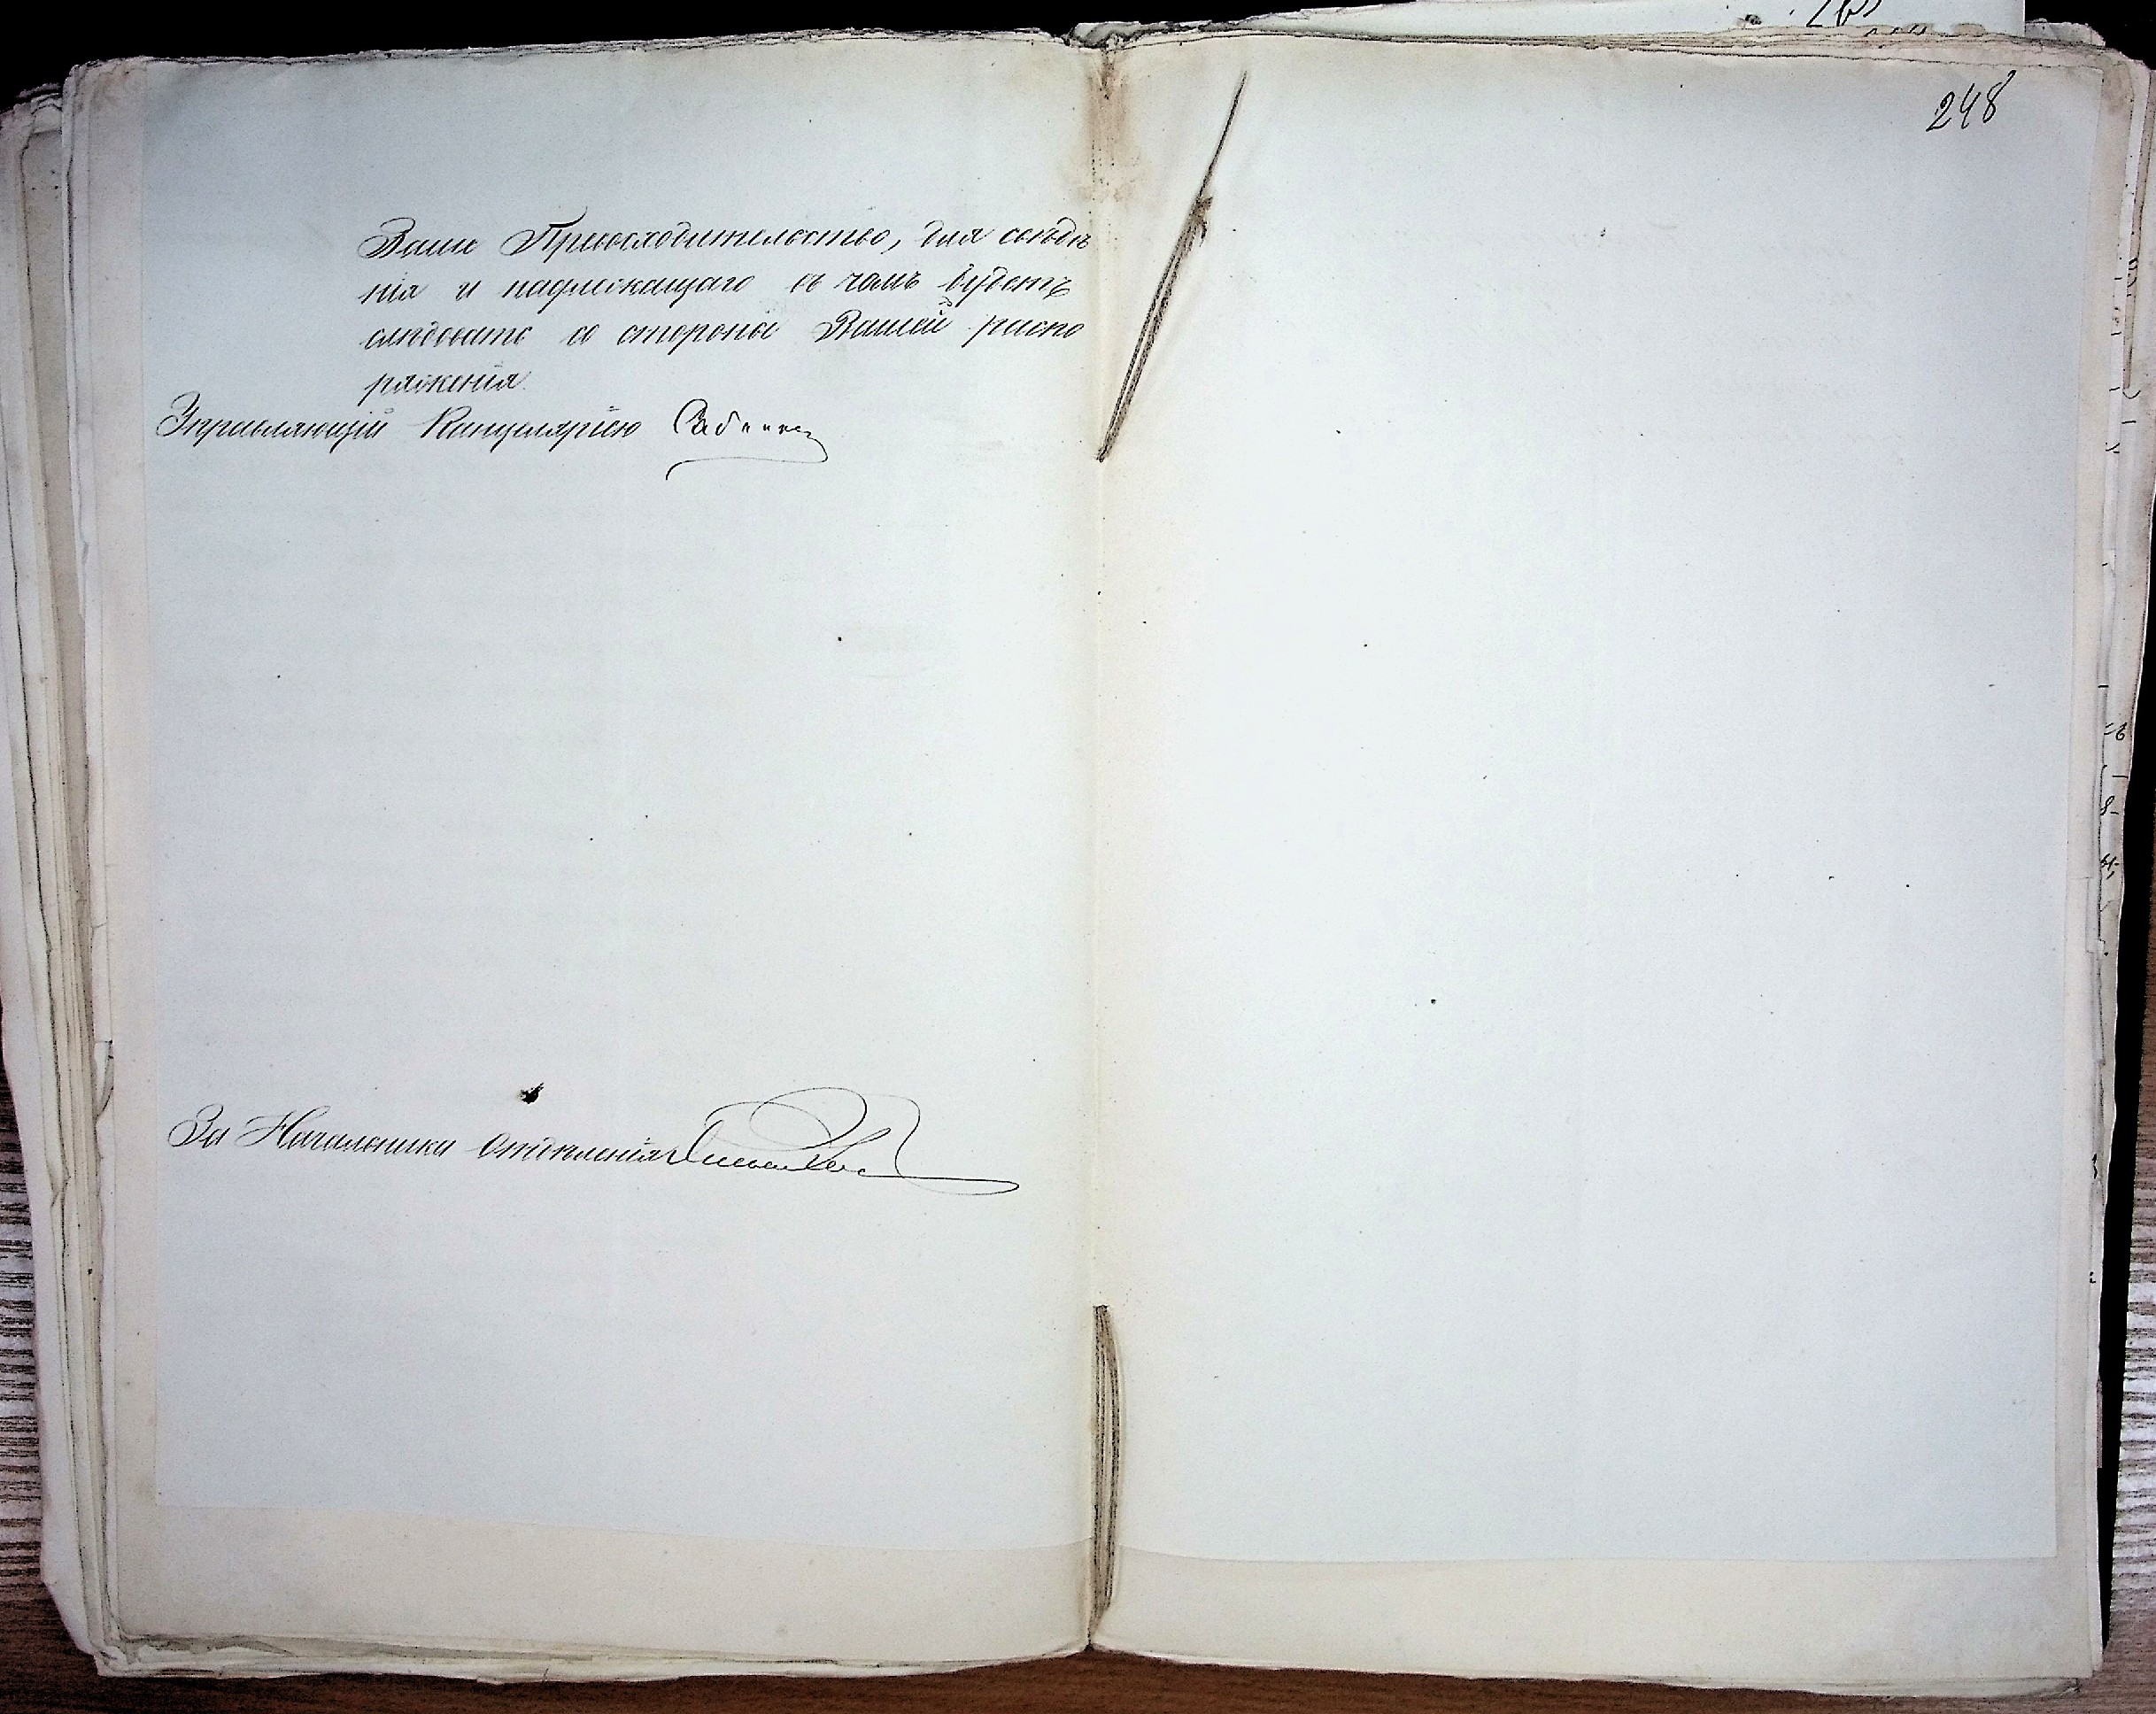 248
Ваше Превосходительство, для свѣдѣ
нія и надлежащаго въ чемъ будетъ
слѣдовать со стороны Вашей распо
ряженія.
Управляющій Канцеляріею
За Начальника Отдѣленія